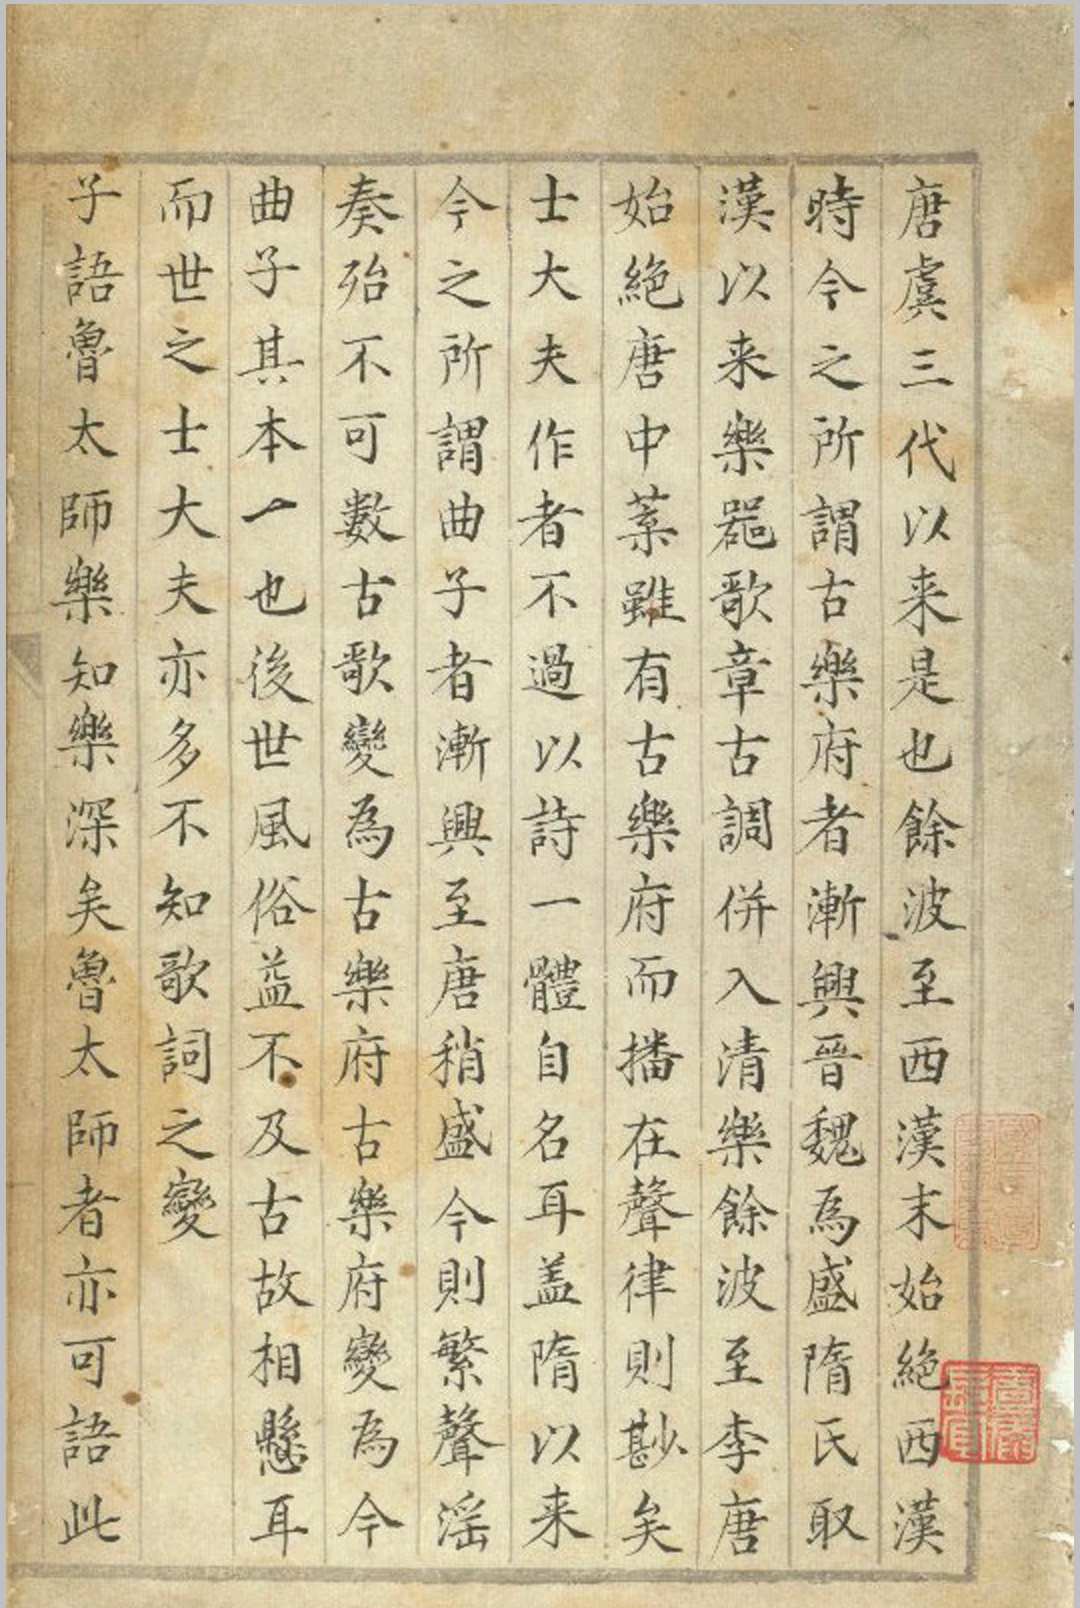 唐虞三代以来是也餘波至西漢末始絶西漢
時今之所謂古樂府者漸興晉魏為盛隋氏取
漢以来樂噐歌章古調併入清樂餘波至李唐
始絶唐中葉雖有古樂府而播在聲律則尠矣
士大夫作者不過以詩一體自名耳盖隋以来
今之所謂曲子者漸興至唐稍盛今則繁聲淫
奏殆不可數古歌變為古樂府古樂府變為今
曲子其本一也後世風俗益不及古故相懸耳
而世之士大夫亦多不知歌詞之變
子語魯太師樂知樂深矣魯太師者亦可語此